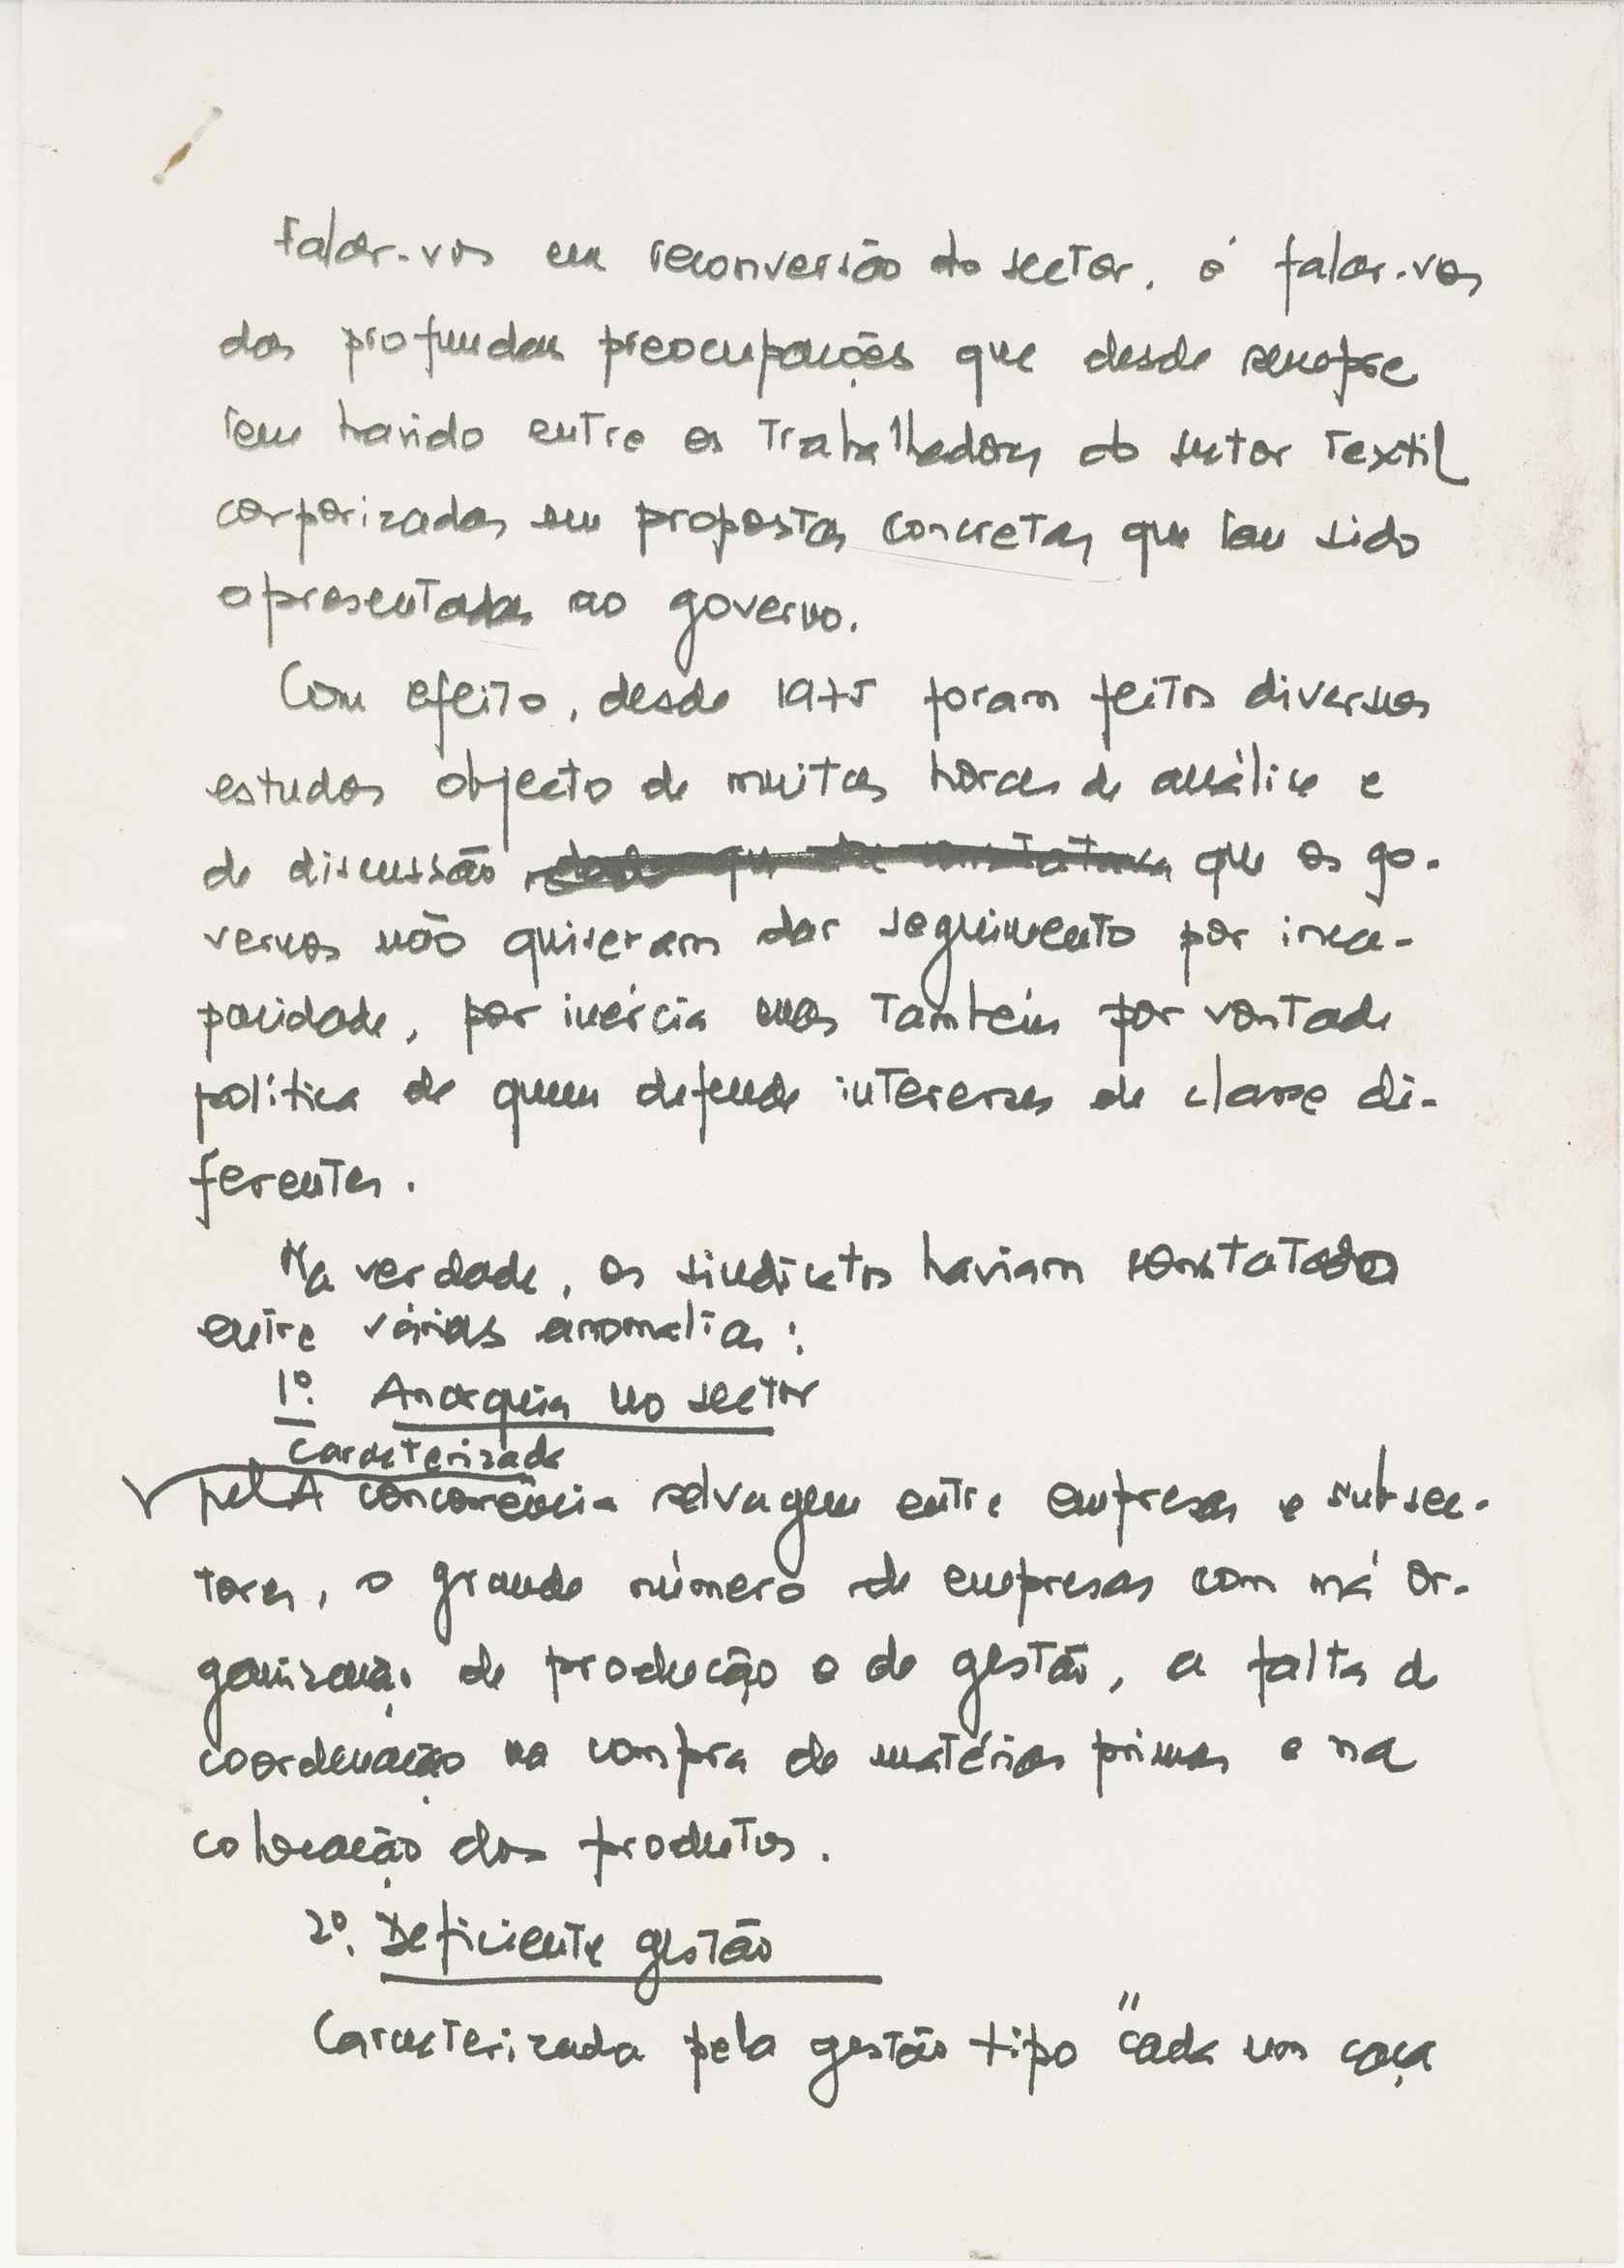 Falar-vos em reconversão do sector, é falar-vos
das profundas preocupações que desde sempre
tem havido entre os trabalhadores do sector textil
corporizadas em propostas concretas que tem sido
apresentadas ao governo.
Com efeito, desde 1975 foram feitos diversos
estudos objecto de muitas horas de análise e
de discussão que os go-
vernos não quiseram dar seguimento por inca-
pacidade, por inércia mas também por vontade
política de quem defende interesses de classe di-
ferentes.
Na verdade, os sindicatos haviam constatado
entre várias anomalias:
1º. Anarquia no sector
Caracterizada
pela concorrência selvagem entre empresas e subsec-
tores, o grande número de empresas com má or-
ganização de produção e de gestão, a falta de
coordenação na compra de matérias primas e na
colocação dos produtos.
2º. Deficiente gestão
Caracterizada pela gestão tipo "cada um caça